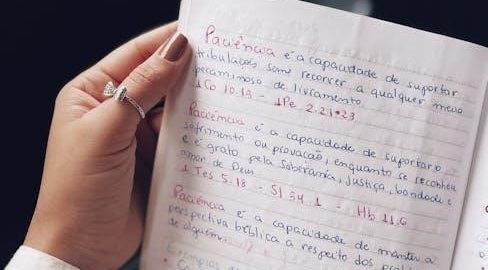 Paciência é a capacidade de suportar
tribulações sem recorrer a qualquer meio
pecaminoso de livramento.
1 Co 10.13 - 1 Pe 2.21-23
Paciência é a capacidade de suportar o
sofrimento ou provação, enquanto se reconhece
e é grato pela soberania, justiça, bondade e
amor de Deus.
1 Tes 5.18 - Sl 34.1 - Hb 11.6
Paciência é a capacidade de manter a
perspectiva bíblica a respeito dos
de alguém.
Exemplos